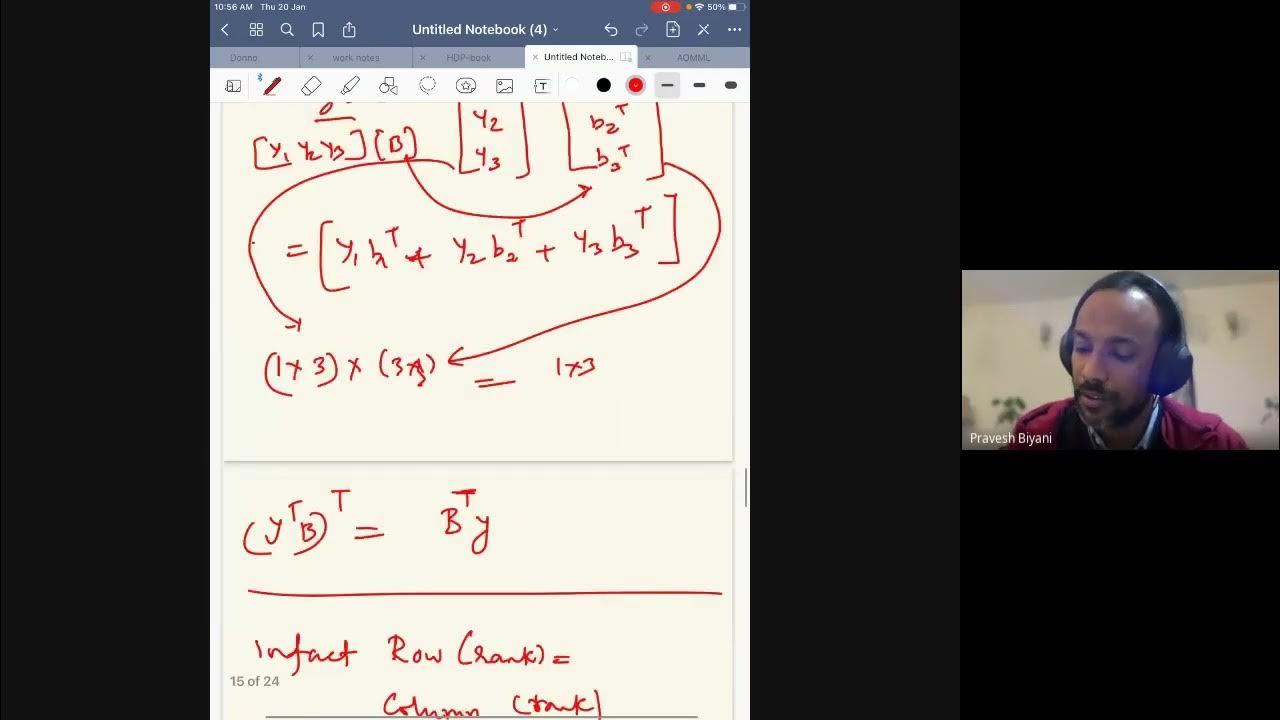 10:56 AM Thu 20 Jan
50%
Untitled Notebook (4)
Donno
work notes
HDP-book
Untitled Noteb...
AOMML
[y₁ y₂ y₃] [B]
y₂
y₃
b₂ᵀ
b₃ᵀ
= [y₁ b₁ᵀ + y₂ b₂ᵀ + y₃ b₃ᵀ]
(1×3) × (3×3) = 1×3
(yᵀB)ᵀ = Bᵀy
Infact Row (rank) =
Column (rank)
15 of 24
Pravesh Biyani